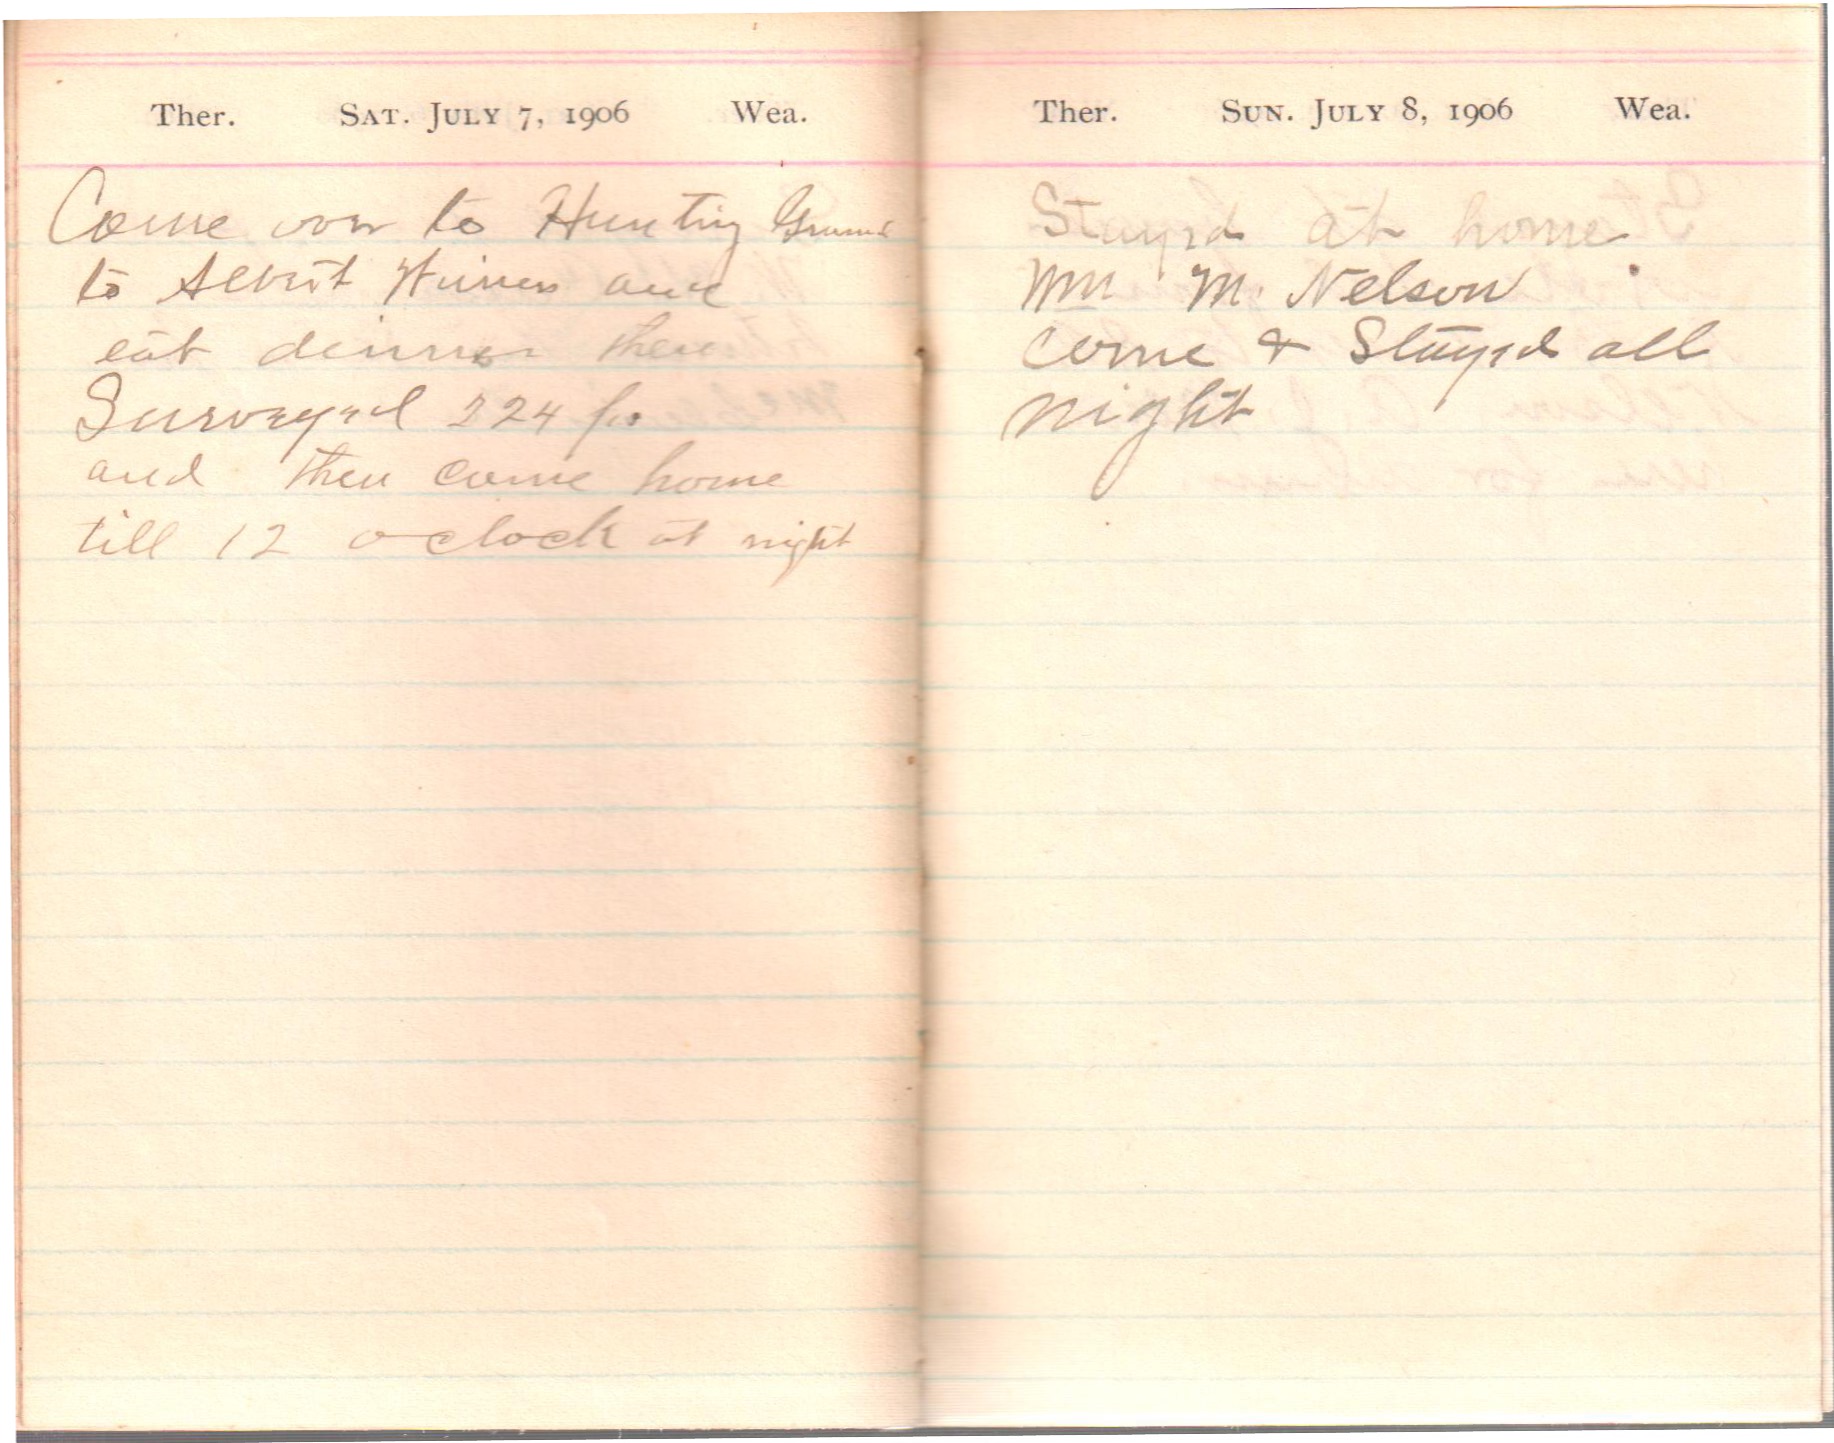 Ther. SAT. JULY 7, 1906 Wea.
Come over to Hunting Ground
to Albert and
eat dinner there
Surveyed 224
and then come home
till 12 o clock at night
Ther. SUN. JULY 8, 1906 Wea.
Stayed at home
Wm M. Nelson
come & Stayed all
night